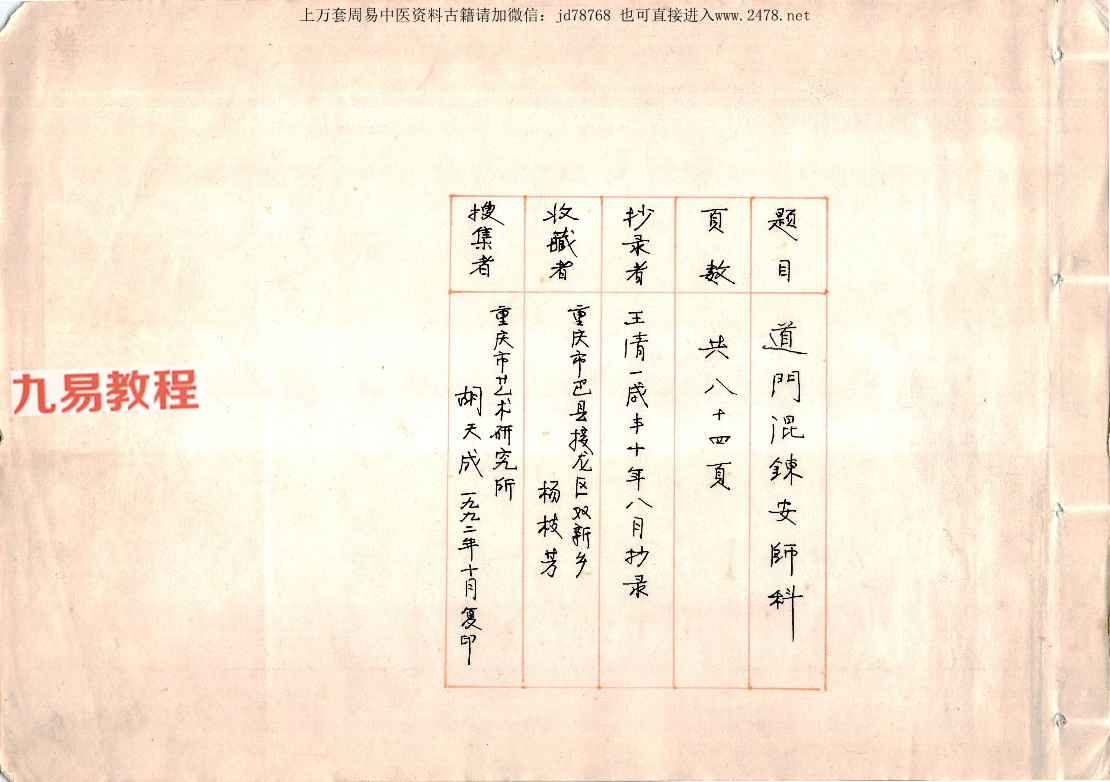 上万套周易中医资料古籍请加微信：jd78768 也可直接进入www.2478.net
题目
道門混錬安師科
頁数
共八十四頁
抄录者
王清一咸丰十年八月抄录
收藏者
重庆市巴县接龙区双新乡
杨枝芳
搜集者
重庆市艺术研究所
胡天成 一九九二年十月复印
九易教程